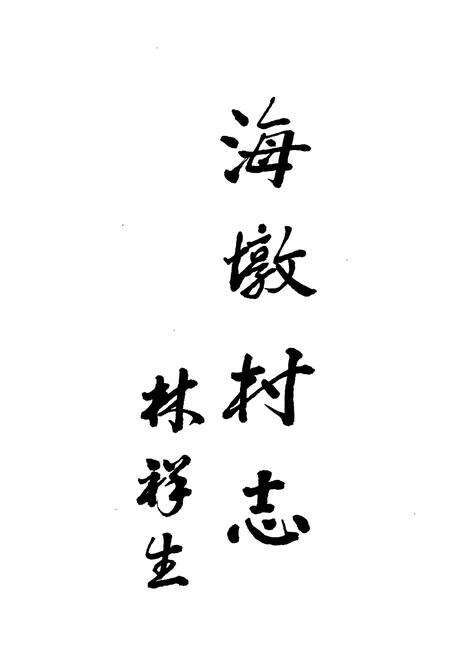 海墩村志
林祥生